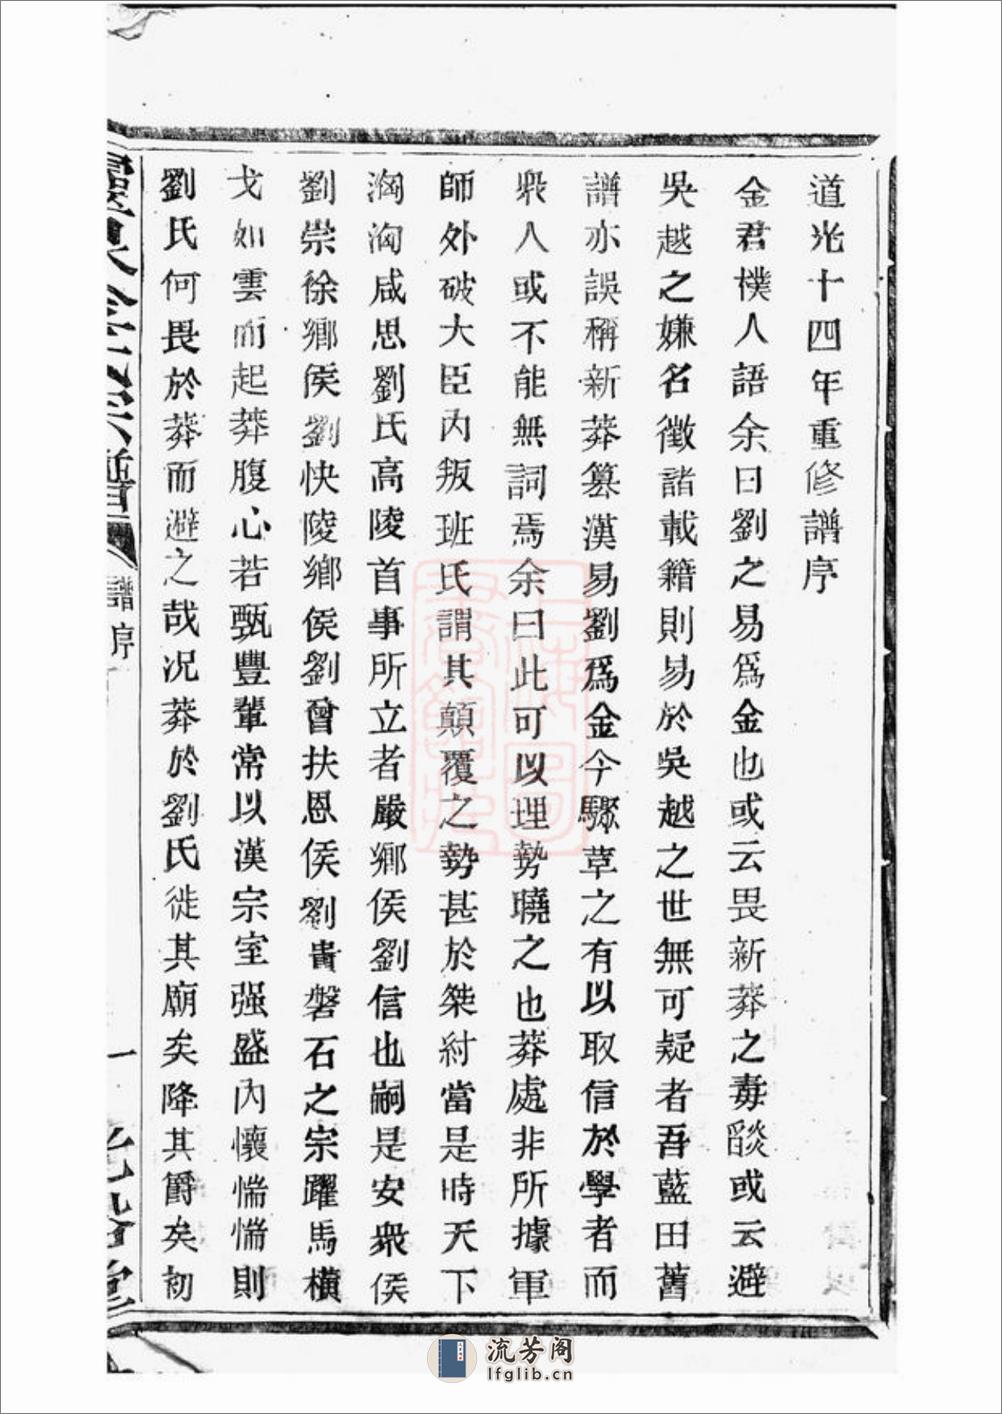 道光十四年重修譜序
金君樸人語余曰劉之易爲金也或云畏新莽之毒燄或云避
吳越之嫌名徵諸載籍則易於吳越之世無可疑者吾藍田舊
譜亦誤稱新莽篡漢易劉爲金今驟草之有以取信於學者而
衆人或不能無詞焉余曰此可以理勢曉之也莽處非所據軍
師外破大臣內叛班氏謂其顛覆之勢甚於桀紂當是時天下
洶洶咸思劉氏高陵首事所立者嚴鄉侯劉信也嗣是安衆侯
劉崇徐鄉侯劉快陵鄉侯劉曾扶恩侯劉貴磐石之宗躍馬橫
戈如雲而起莽腹心若甄豐輩常以漢宗室强盛內懷惴惴則
劉氏何畏於莽而避之哉況莽於劉氏徙其廟矣降其爵矣初
氏宗譜
譜序
一
堂
流芳阁
lfglib.cn